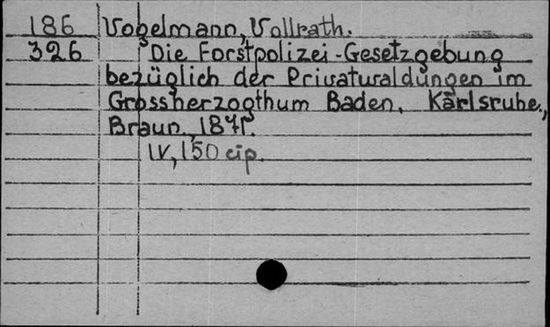 186 Vogelmann, Vollrath.
326 Die Forstpolizei-Gesetzgebung
bezüglich der Privatwaldungen im
Grossherzogthum Baden. Karlsruhe,
Braun, 1871.
IV, 150 cip.